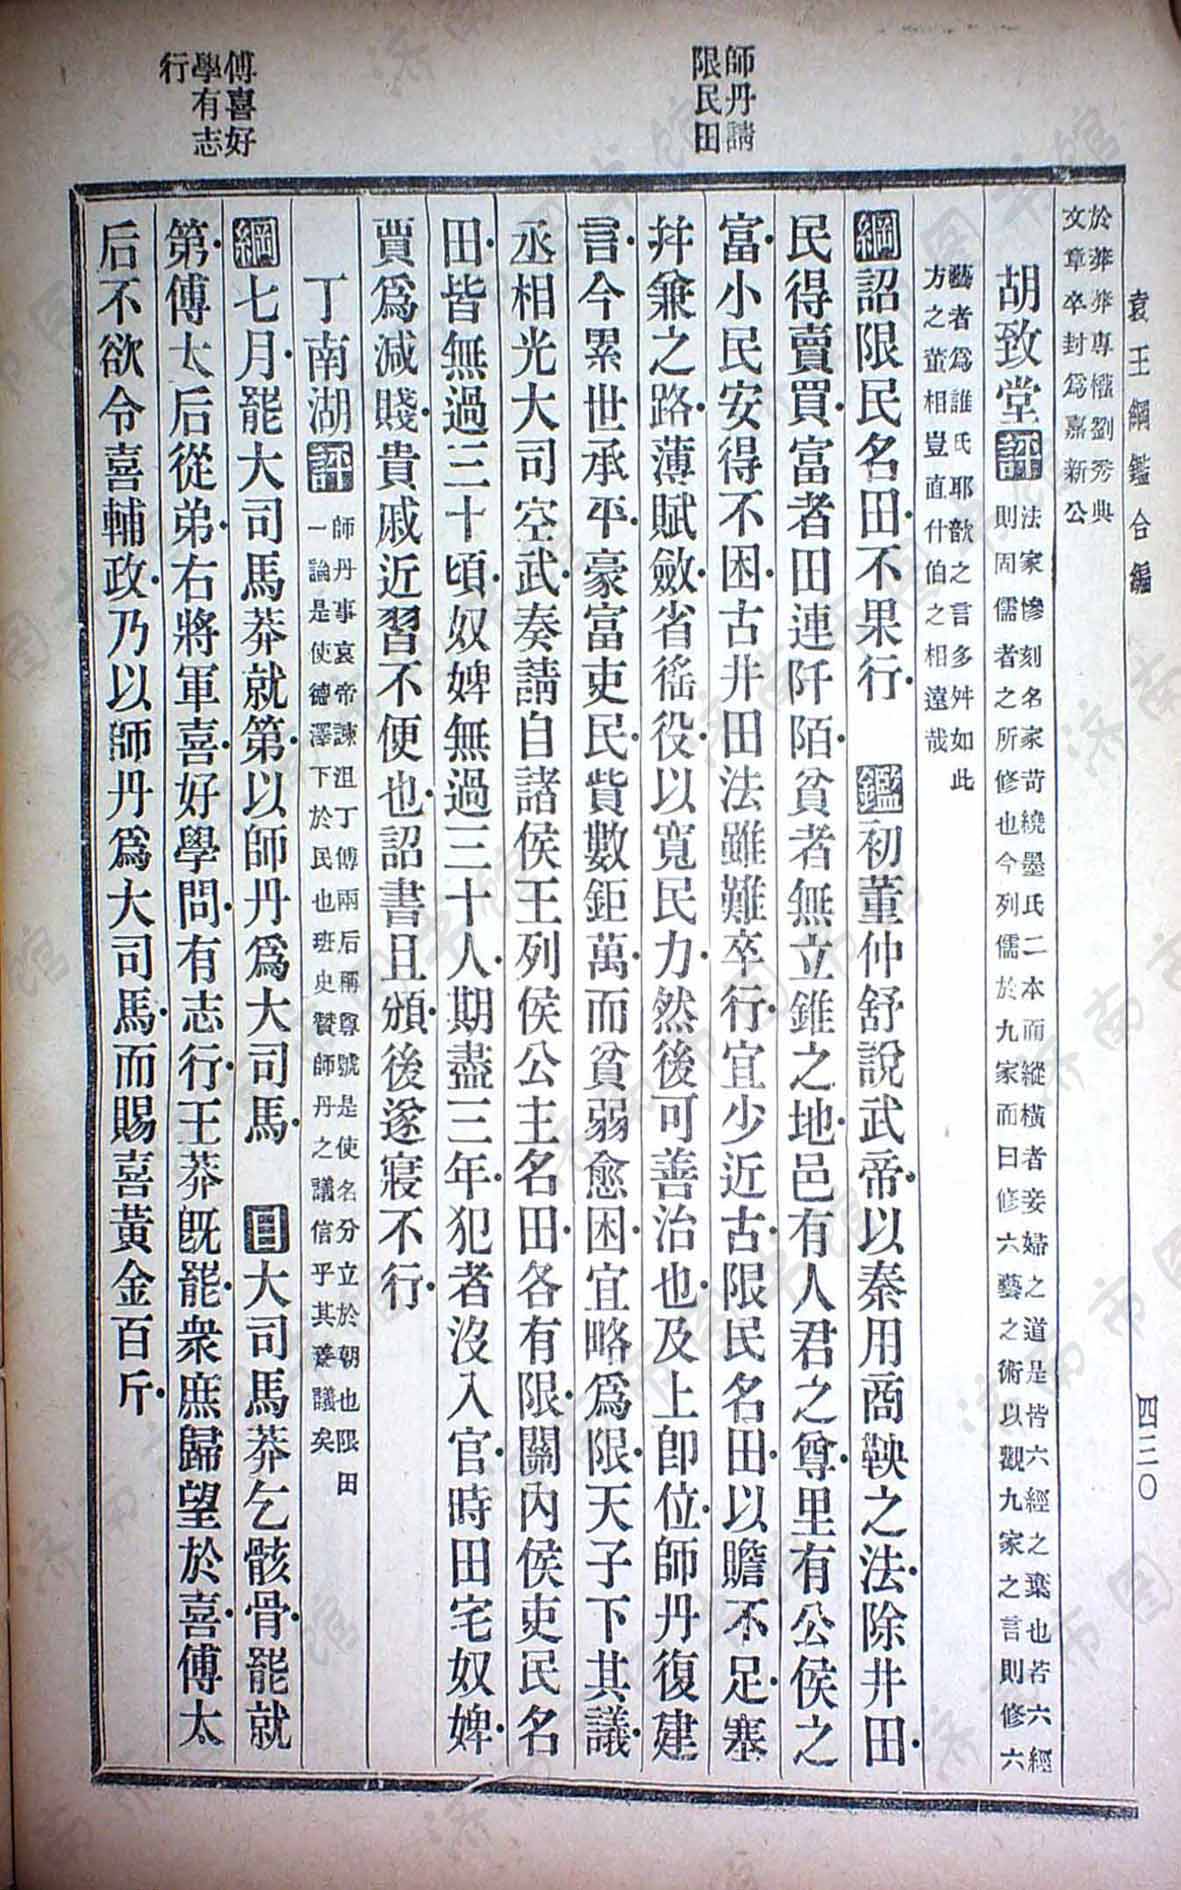 袁王綱鑑合編
四三〇
師丹請
限民田
傅喜好
學有志
行
於莽莽專權劉秀典
文章卒封爲嘉新公
胡致堂評
法家慘刻名家苛繞墨氏二本而縱橫者妾婦之道是皆六經之棄也若六經
則周儒者之所修也今列儒於九家而曰修六藝之術以觀九家之言則修六
藝者爲誰氏耶歆之言多舛如此
方之董相豈直什伯之相遠哉
綱詔限民名田不果行　鑑初董仲舒說武帝以秦用商鞅之法除井田
民得賣買富者田連阡陌貧者無立錐之地邑有人君之尊里有公侯之
富小民安得不困古井田法雖難卒行宜少近古限民名田以贍不足塞
幷兼之路薄賦斂省徭役以寬民力然後可善治也及上卽位師丹復建
言今累世承平豪富吏民貲數鉅萬而貧弱愈困宜略爲限天子下其議
丞相光大司空武奏請自諸侯王列侯公主名田各有限關內侯吏民名
田皆無過三十頃奴婢無過三十人期盡三年犯者沒入官時田宅奴婢
賈爲減賤貴戚近習不便也詔書且頒後遂寢不行
丁南湖評
師丹事哀帝諫沮丁傅兩后稱尊號是使名分立於朝也限田
一論是使德澤下於民也班史贊師丹之議信乎其蹇議矣
綱七月罷大司馬莽就第以師丹爲大司馬　目大司馬莽乞骸骨罷就
第傅太后從弟右將軍喜好學問有志行王莽旣罷衆庶歸望於喜傅太
后不欲令喜輔政乃以師丹爲大司馬而賜喜黃金百斤